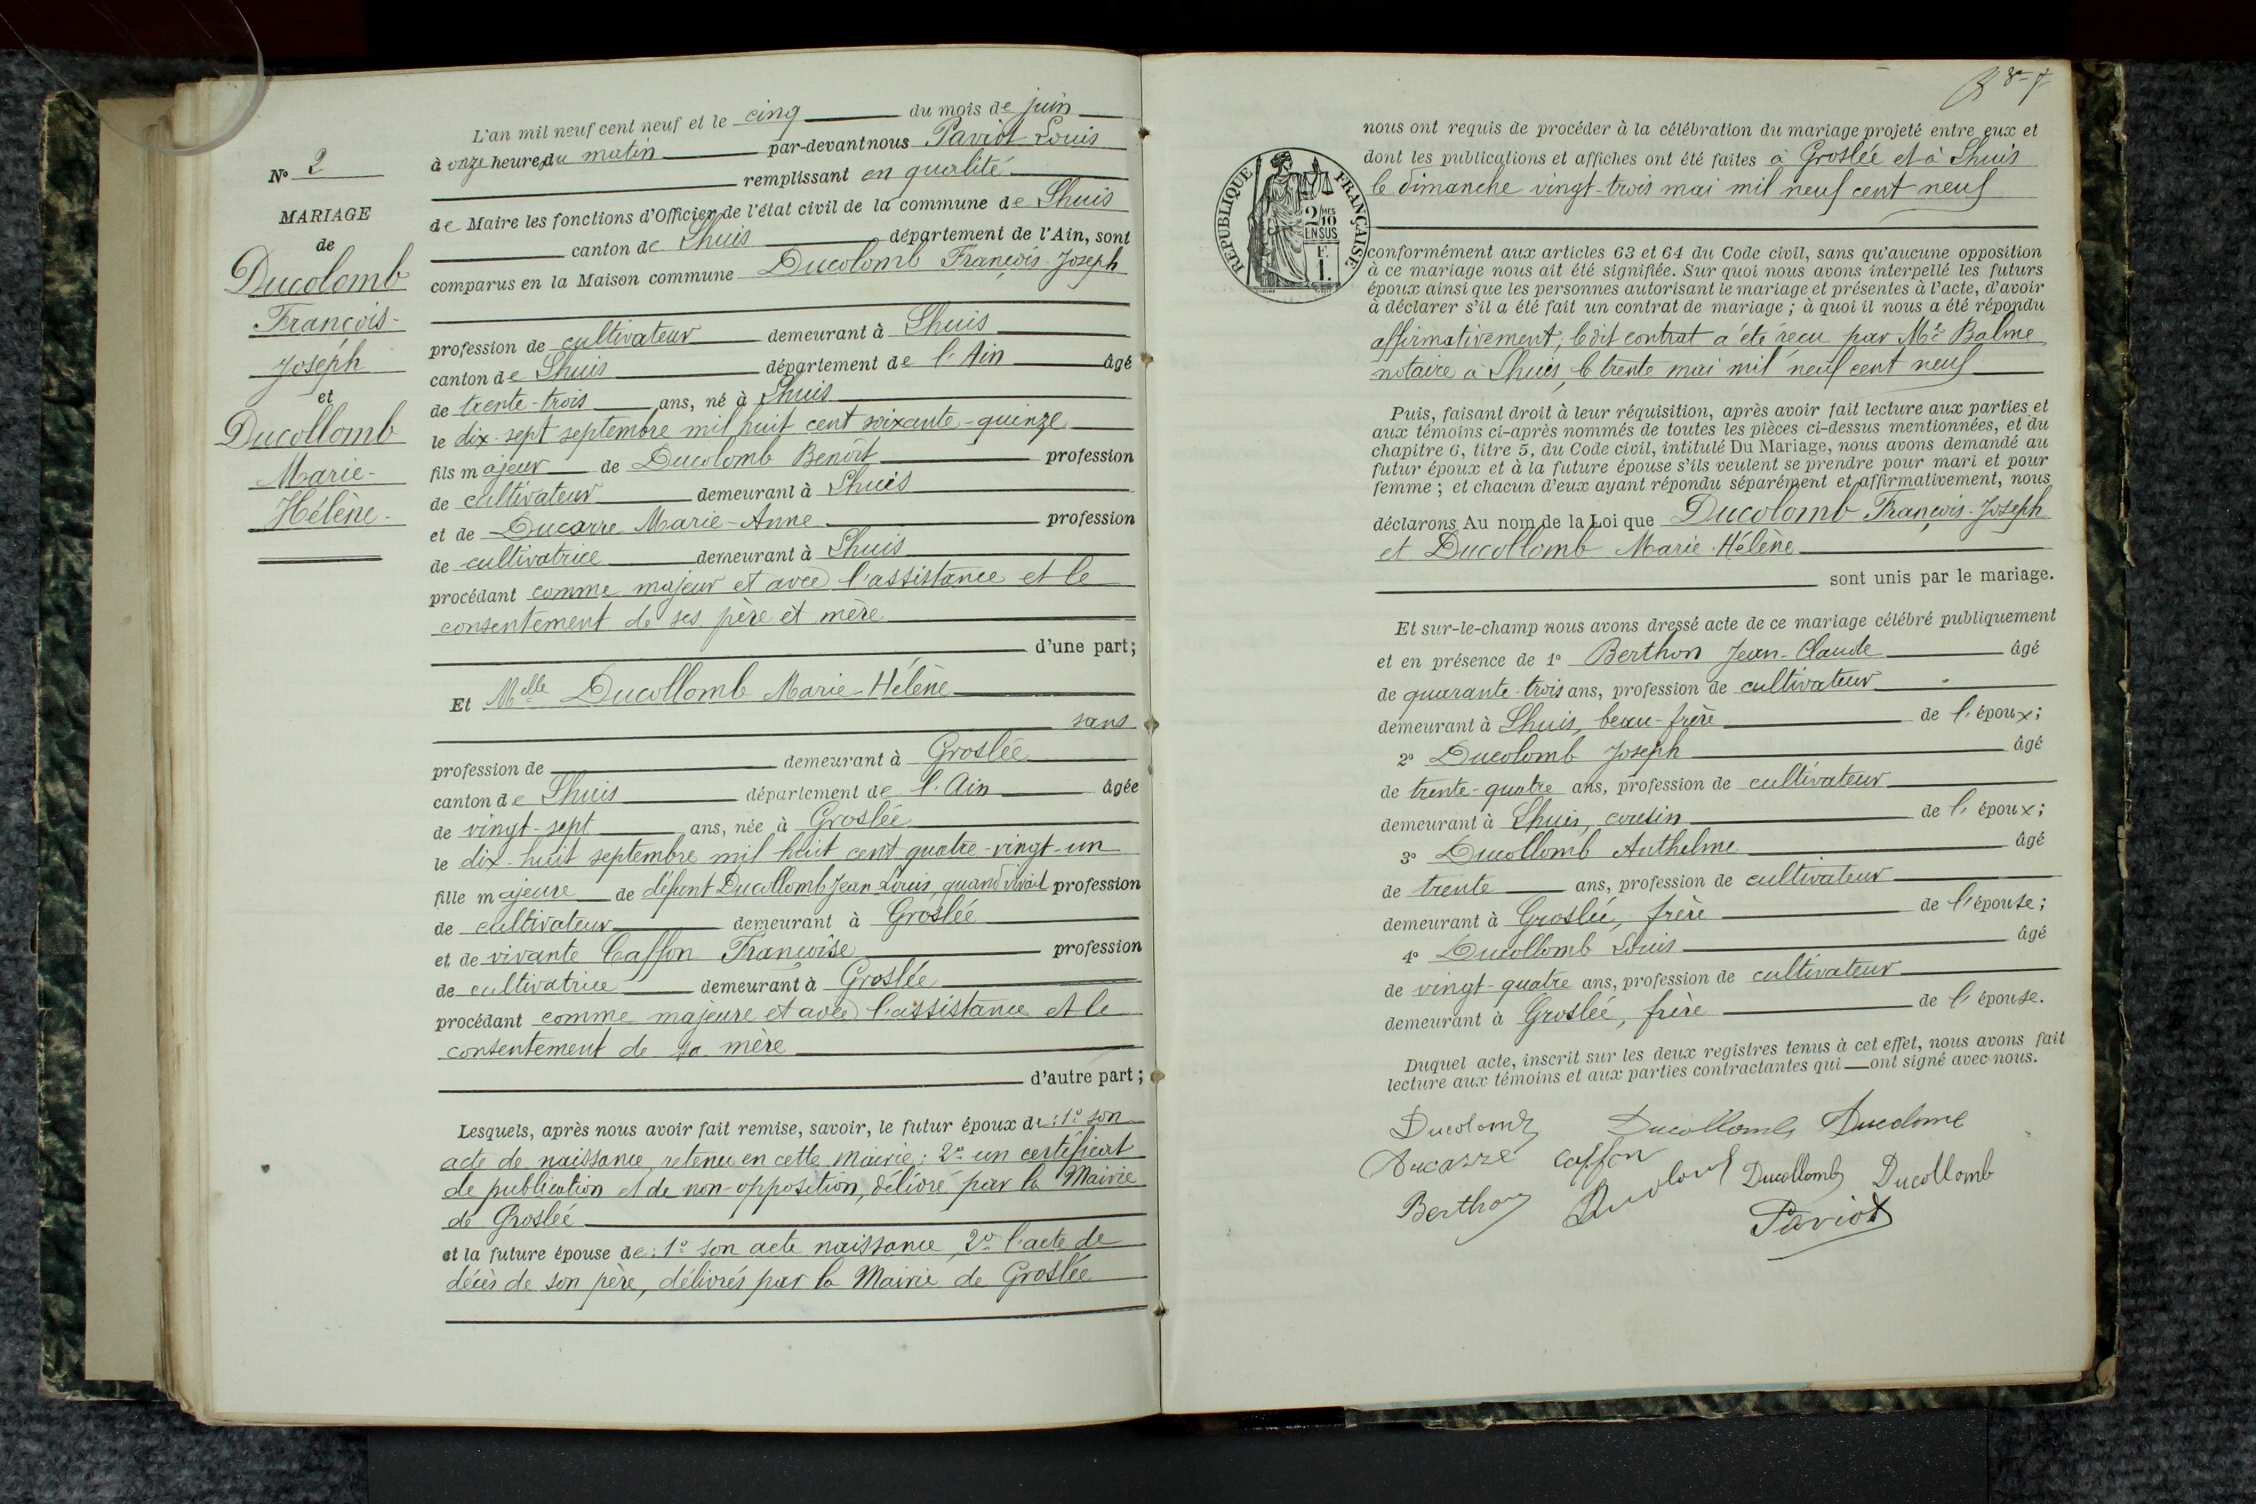 N° 2
MARIAGE
de
Ducolomb
François-
Joseph
et
Ducollomb
Marie-
Hélène
L'an mil neuf cent neuf et le cinq du mois de juin
à onze heures du matin par-devant nous Paviot Louis
remplissant en qualité
de Maire les fonctions d'Officier de l'état civil de la commune de Lhuis
canton de Lhuis département de l'Ain, sont
comparus en la Maison commune Ducolomb François-Joseph
profession de cultivateur demeurant à Lhuis
canton de Lhuis département de l'Ain âgé
de trente-trois ans, né à Lhuis
le dix-sept septembre mil huit cent soixante-quinze
fils majeur de Ducolomb Benoît profession
de cultivateur demeurant à Lhuis
et de Ducarre Marie-Anne profession
de cultivatrice demeurant à Lhuis
procédant comme majeur et avec l'assistance et le
consentement de ses père et mère
d'une part;
Et Melle Ducollomb Marie-Hélène
sans
profession de demeurant à Groslée
canton de Lhuis département de l'Ain âgée
de vingt-sept ans, née à Groslée
le dix-huit septembre mil huit cent quatre-vingt-un
fille majeure de défunt Ducollomb Jean Louis, quand vivait profession
de cultivateur demeurant à Groslée
et de vivante Caffon Françoise profession
de cultivatrice demeurant à Groslée
procédant comme majeure et avec l'assistance et le
consentement de sa mère
d'autre part;
Lesquels, après nous avoir fait remise, savoir, le futur époux de : 1° son
acte de naissance, retenu en cette mairie ; 2° un certificat
de publication et de non-opposition, délivré par la Mairie
de Groslée
et la future épouse de : 1° son acte naissance, 2° l'acte de
décès de son père, délivrés par la Mairie de Groslée
RÉPUBLIQUE FRANÇAISE
2/10 MES
EN SUS
F.
1.
nous ont requis de procéder à la célébration du mariage projeté entre eux et
dont les publications et affiches ont été faites à Groslée et à Lhuis
le dimanche vingt-trois mai mil neuf cent neuf
conformément aux articles 63 et 64 du Code civil, sans qu'aucune opposition
à ce mariage nous ait été signifiée. Sur quoi nous avons interpellé les futurs
époux ainsi que les personnes autorisant le mariage et présentes à l'acte, d'avoir
à déclarer s'il a été fait un contrat de mariage ; à quoi il nous a été répondu
affirmativement, ledit contrat a été reçu par Me Balme
notaire à Lhuis, le trente mai mil neuf cent neuf
Puis, faisant droit à leur réquisition, après avoir fait lecture aux parties et
aux témoins ci-après nommés de toutes les pièces ci-dessus mentionnées, et du
chapitre 6, titre 5, du Code civil, intitulé Du Mariage, nous avons demandé au
futur époux et à la future épouse s'ils veulent se prendre pour mari et pour
femme ; et chacun d'eux ayant répondu séparément et affirmativement, nous
déclarons Au nom de la Loi que Ducolomb François-Joseph
et Ducollomb Marie-Hélène
sont unis par le mariage.
Et sur-le-champ nous avons dressé acte de ce mariage célébré publiquement
et en présence de 1° Berthon Jean-Claude âgé
de quarante-trois ans, profession de cultivateur
demeurant à Lhuis, beau-frère de l'époux ;
2° Ducolomb Joseph âgé
de trente-quatre ans, profession de cultivateur
demeurant à Lhuis, cousin de l'époux ;
3° Ducollomb Anthelme âgé
de trente ans, profession de cultivateur
demeurant à Groslée, frère de l'épouse ;
4° Ducollomb Louis âgé
de vingt-quatre ans, profession de cultivateur
demeurant à Groslée, frère de l'épouse.
Duquel acte, inscrit sur les deux registres tenus à cet effet, nous avons fait
lecture aux témoins et aux parties contractantes qui ont signé avec nous.
Ducolomb Ducollomb Ducolomb
Ducarre Caffon
Berthon Ducollomb Ducollomb
Paviot